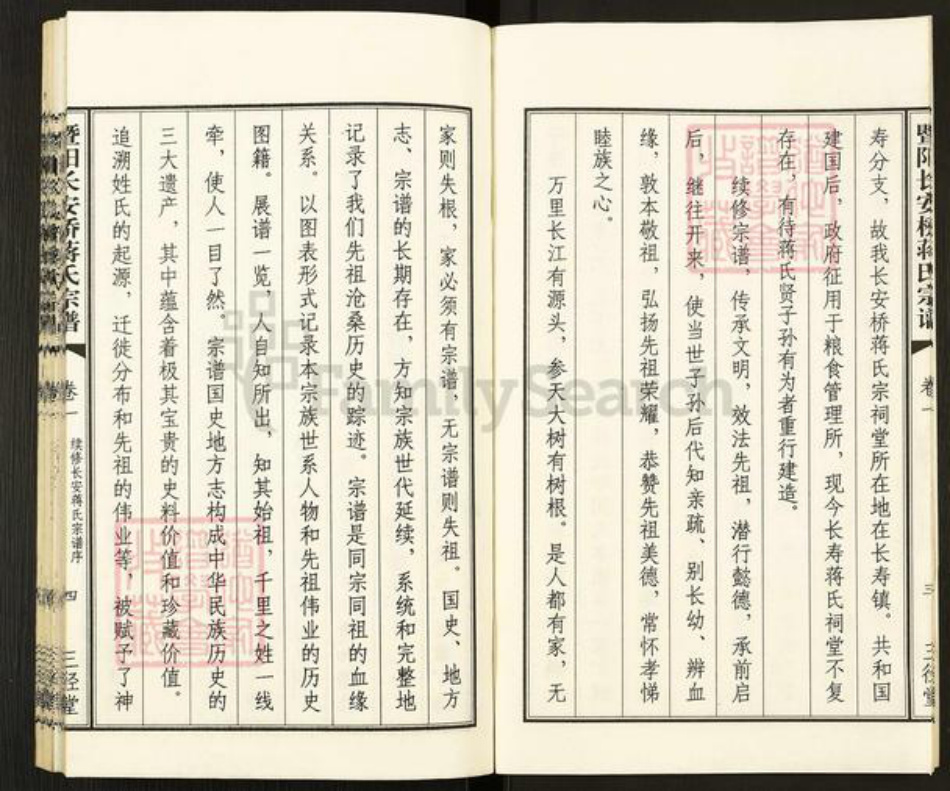 暨阳长安桥蒋氏宗谱
卷一
三
三径堂
寿分支，故我长安桥蒋氏宗祠堂所在地在长寿镇。共和国
建国后，政府征用于粮食管理所，现今长寿蒋氏祠堂不复
存在，有待蒋氏贤子孙有为者重行建造。
续修宗谱，传承文明，效法先祖，潜行懿德，承前启
后，继往开来，使当世子孙后代知亲疏、别长幼、辨血
缘，敦本敬祖，弘扬先祖荣耀，恭赞先祖美德，常怀孝悌
睦族之心。
万里长江有源头，参天大树有树根。是人都有家，无
家则失根，家必须有宗谱，无宗谱则失祖。国史、地方
志、宗谱的长期存在，方知宗族世代延续，系统和完整地
记录了我们先祖沧桑历史的踪迹。宗谱是同宗同祖的血缘
关系。以图表形式记录本宗族世系人物和先祖伟业的历史
图籍。展谱一览，人自知所出，知其始祖，千里之姓一线
牵，使人一目了然。宗谱国史地方志构成中华民族历史的
三大遗产，其中蕴含着极其宝贵的史料价值和珍藏价值。
追溯姓氏的起源，迁徙分布和先祖的伟业等，被赋予了神
暨阳长安桥蒋氏宗谱
卷一
续修长安蒋氏宗谱序
四
三径堂
FamilySearch